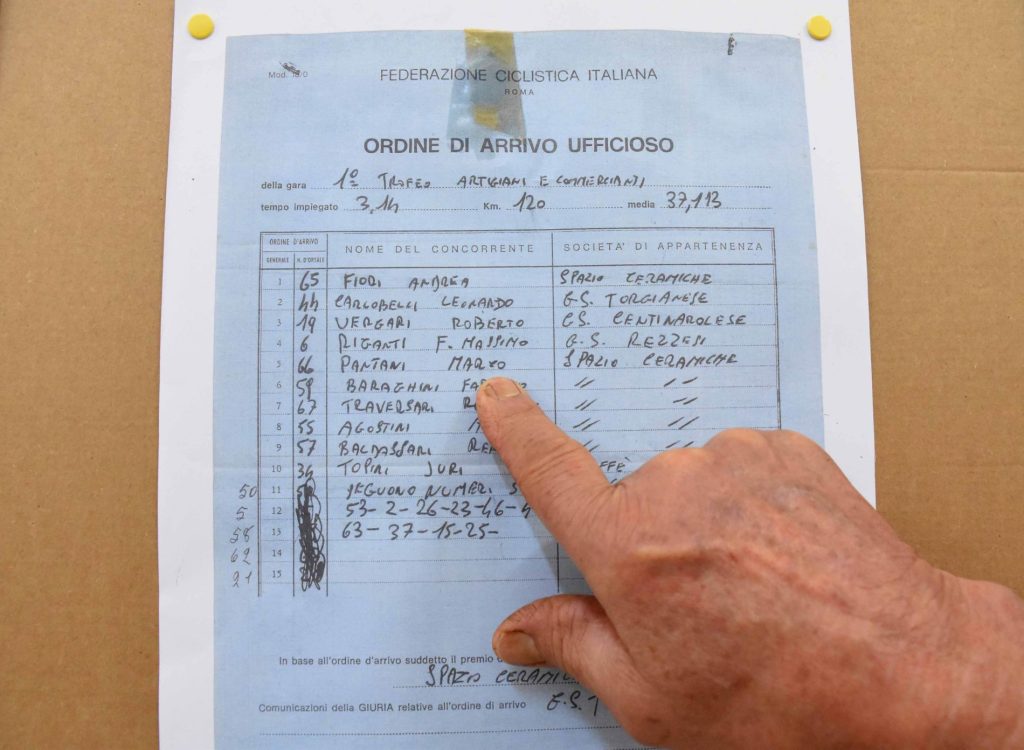 FEDERAZIONE CICLISTICA ITALIANA
ROMA
ORDINE DI ARRIVO UFFICIOSO
della gara 1º TROFEO ARTIGIANI E COMMERCIANTI
tempo impiegato 3,14 Km. 120 media 37,113
ORDINE D'ARRIVO NOME DEL CONCORRENTE SOCIETA' DI APPARTENENZA
GENERALE N. D'ORSALE
1 65 FIORI ANDREA SPAZIO CERAMICHE
2 44 CARLOBELLI LEONARDO G.S. TORGIANESE
3 19 VERGARI ROBERTO CS. CENTINAROLESE
4 6 RIGANTI F. MASSIMO G.S. REZZESI
5 66 PANTANI MARCO SPAZIO CERAMICHE
6 59 BARAGHINI // //
7 67 TRAVERSARI // //
8 55 AGOSTINI // //
9 57 BALDASSARI // //
10 34 TOPINI JURI
50 11 SEGUONO NUMERI
5 12 53-2-26-23-46-
58 13 63-37-15-25-
62 14
21 15
In base all'ordine d'arrivo suddetto il premio
SPAZIO
Comunicazioni della GIURIA relative all'ordine di arrivo G.S.